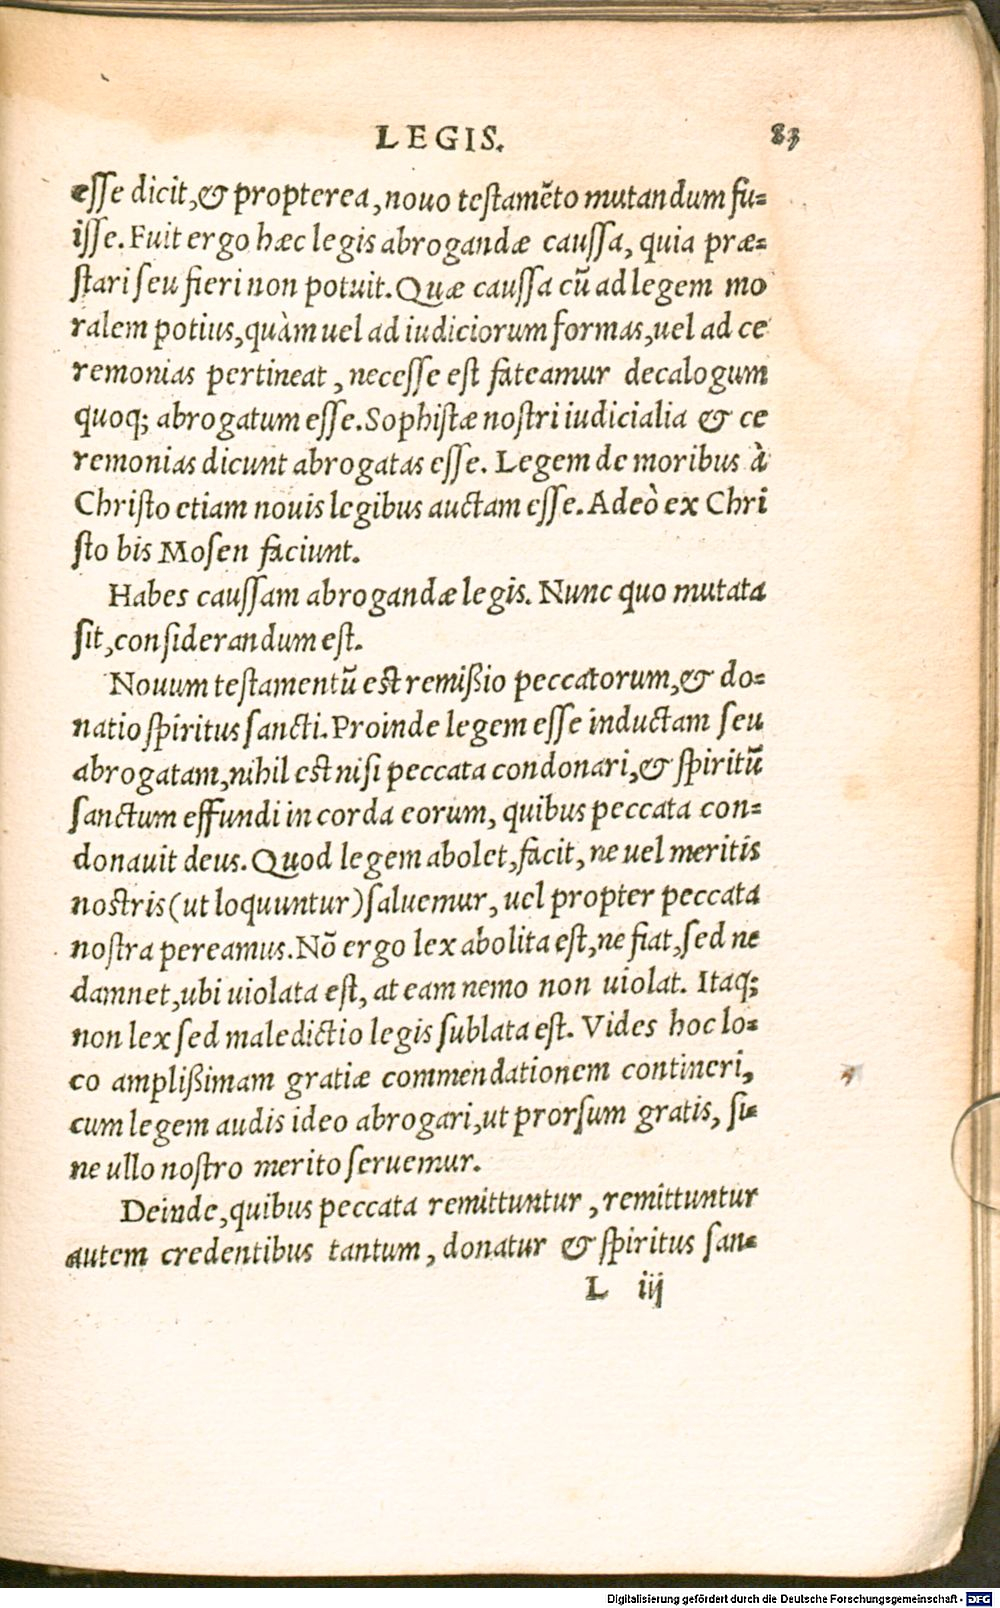 LEGIS. 83
esse dicit, & propterea, nouo testamēto mutandum fu-
isse. Fuit ergo hæc legis abrogandæ caussa, quia præ-
stari seu fieri non potuit. Quæ caussa cū ad legem mo
ralem potius, quàm uel ad iudiciorum formas, uel ad ce
remonias pertineat, necesse est fateamur decalogum
quoq; abrogatum esse. Sophistæ nostri iudicialia & ce
remonias dicunt abrogatas esse. Legem de moribus à
Christo etiam nouis legibus auctam esse. Adeò ex Chri
sto bis Mosen faciunt.
Habes caussam abrogandæ legis. Nunc quo mutata
sit, considerandum est.
Nouum testamentū est remißio peccatorum, & do-
natio spiritus sancti. Proinde legem esse inductam seu
abrogatam, nihil est nisi peccata condonari, & spiritū
sanctum effundi in corda eorum, quibus peccata con-
donauit deus. Quod legem abolet, facit, ne uel meritis
nostris (ut loquuntur) saluemur, uel propter peccata
nostra pereamus. Nō ergo lex abolita est, ne fiat, sed ne
damnet, ubi uiolata est, at eam nemo non uiolat. Itaq;
non lex sed maledictio legis sublata est. Vides hoc lo-
co amplißimam gratiæ commendationem contineri,
cum legem audis ideo abrogari, ut prorsum gratis, si-
ne ullo nostro merito seruemur.
Deinde, quibus peccata remittuntur, remittuntur
autem credentibus tantum, donatur & spiritus san-
L iij
Digitalisierung gefördert durch die Deutsche Forschungsgemeinschaft - DFG